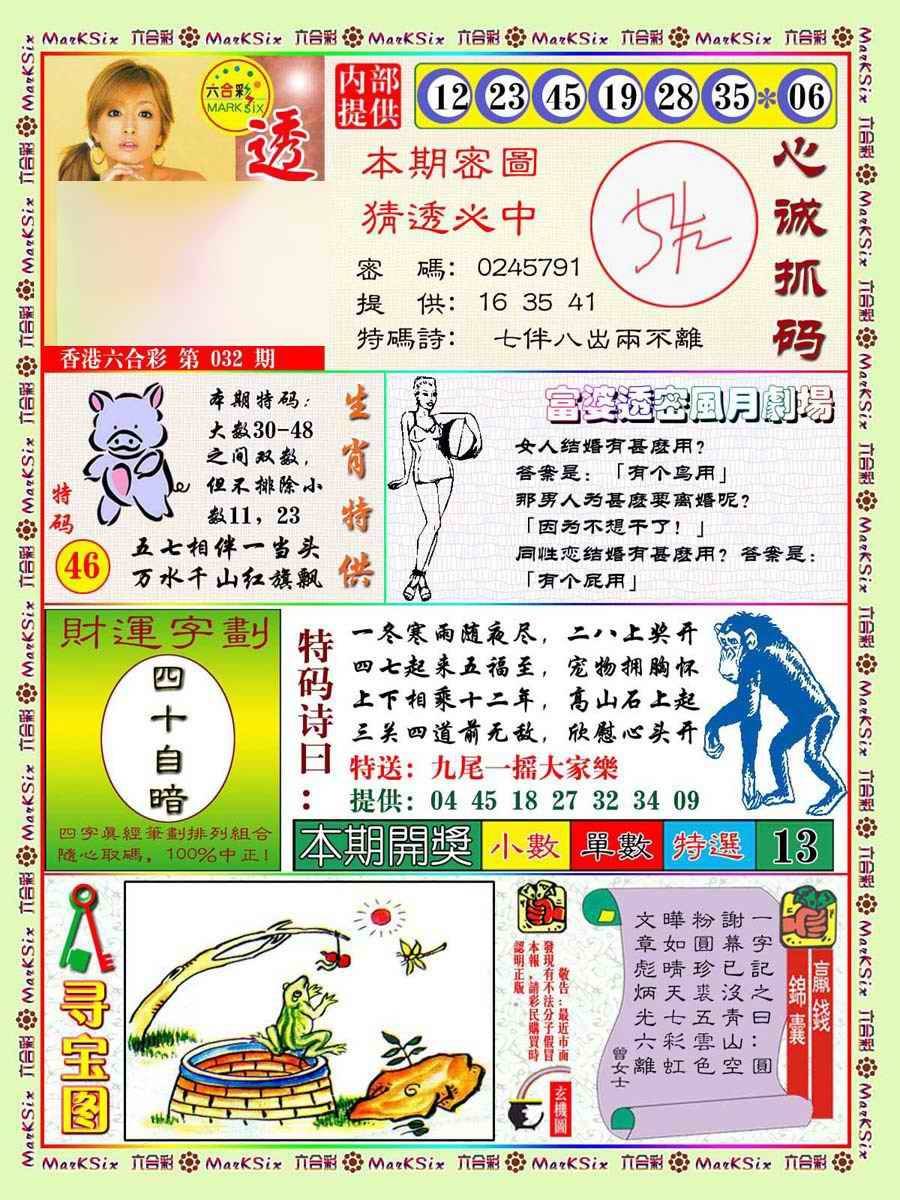 MarKSix 六合彩 MarKSix 六合彩 MarKSix 六合彩 MarKSix 六合彩 MarKSix 六合彩
六合彩
MARK SIX
透
内部
提供
12 23 45 19 28 35 * 06
本期密圖
猜透必中
密 碼: 0245791
提 供: 16 35 41
特碼詩: 七伴八出兩不離
心诚抓码
香港六合彩 第 032 期
特码
46
本期特码:
大数30-48
之间双数,
但不排除小
数11, 23
五七相伴一当头
万水千山红旗飘
生肖特供
富婆透密風月劇場
女人结婚有甚麽用?
答案是: 「有个鸟用」
那男人为甚麽要离婚呢?
「因为不想干了! 」
同性恋结婚有甚麽用? 答案是:
「有个屁用」
財運字劃
四十自暗
四字真經筆劃排列組合
隨心取碼, 100%中正!
特码诗曰:
一冬寒雨随夜尽, 二八上奖开
四七起来五福至, 宠物拥胸怀
上下相乘十二年, 高山石上起
三关四道前无敌, 欣慰心头开
特送: 九尾一摇大家樂
提供: 04 45 18 27 32 34 09
本期開獎 小數 單數 特選 13
寻宝图
敬告:最近市面
發現有不法分子假冒
本報,請彩民購買時
認明正版。
玄機圖
贏錢
錦囊
一字記之曰:圓
謝幕已沒青山空
粉圓珍裘五雲色
曄如晴天七彩虹
文章彪炳光六離
曾女士
MarKSix 六合彩 MarKSix 六合彩 MarKSix 六合彩 MarKSix 六合彩 MarKSix 六合彩